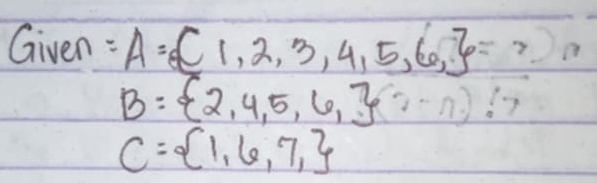 Given = A = { 1, 2, 3, 4, 5, 6, }
B = { 2, 4, 5, 6, }
C = { 1, 6, 7, }